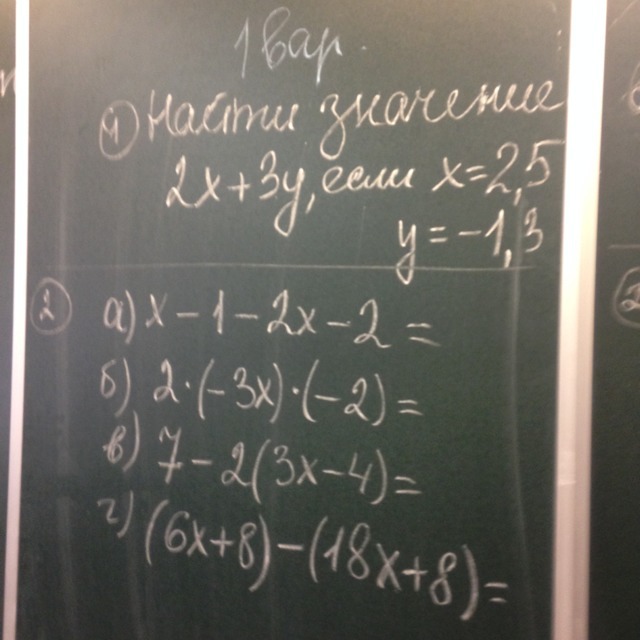 1 вар.
1) Найти значение
2x+3y, если x=2,5
y=-1,3
2 а) x-1-2x-2=
б) 2·(-3x)·(-2)=
в) 7-2(3x-4)=
г) (6x+8)-(18x+8)=